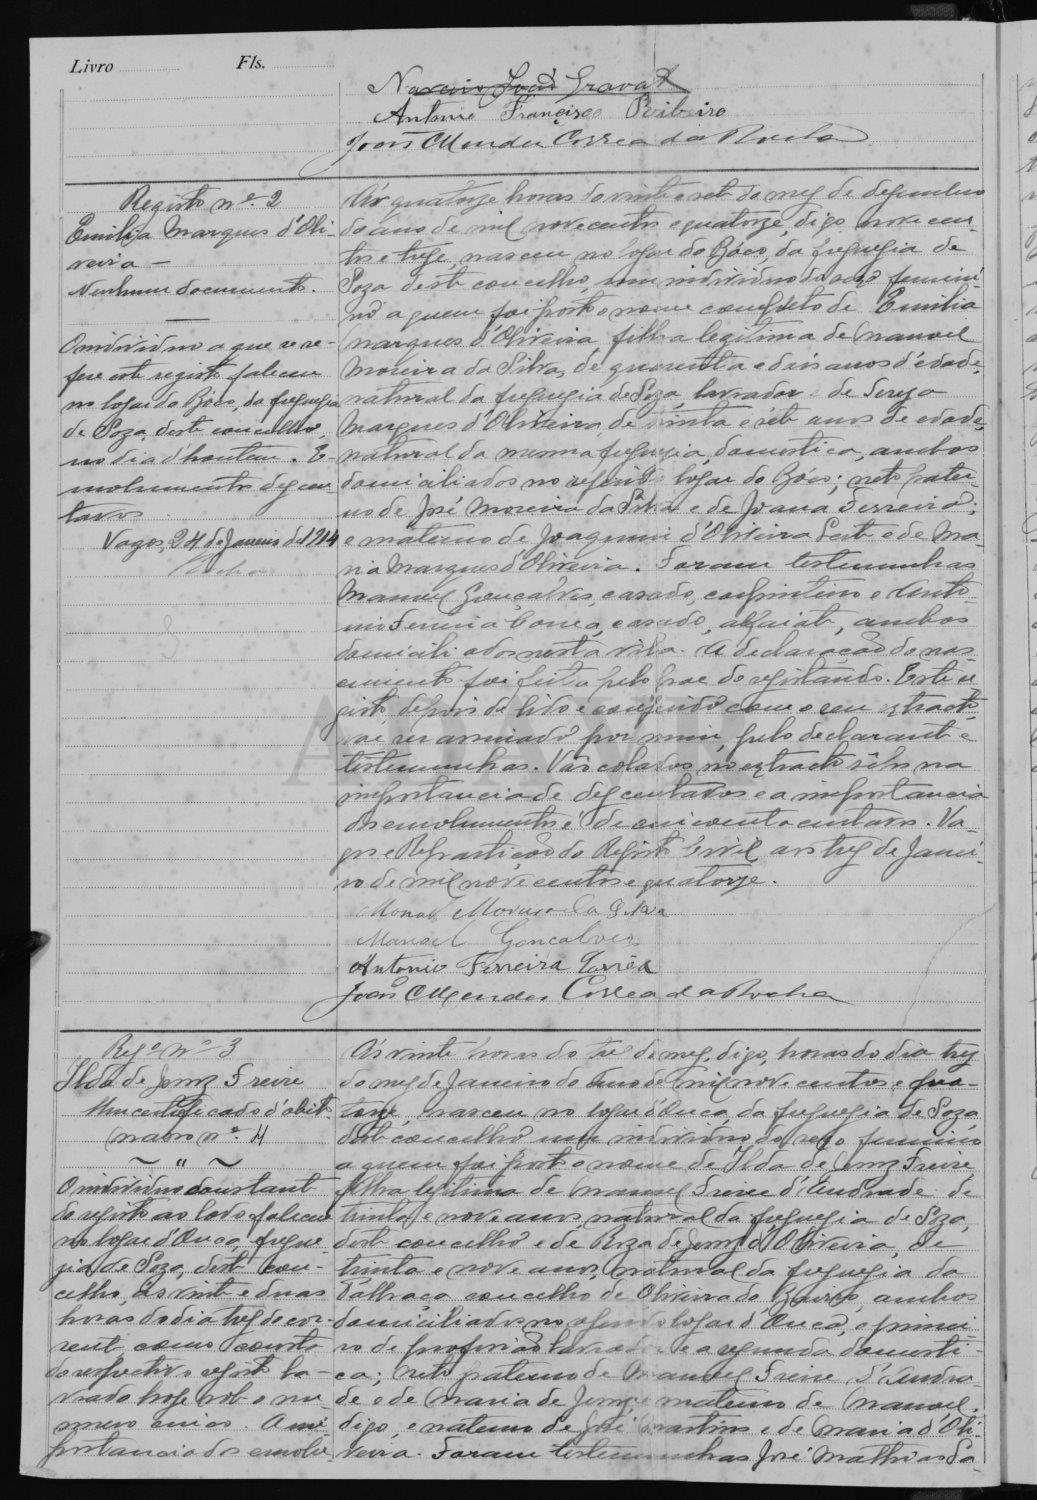 Livro Fls.
Narciso José Gravat
Antonio Francisco Ribeiro
João Mendes Correa da Rocha
Registo nº 2
Emilia Marques d'Oli-
veira —
Nenhum documento.
O individuo a que se re-
fere este registo faleceu
no logar do Bóco, da freguesia
de Soza, deste concelho,
no dia d'hontem. E-
molumentos dez cen-
tavos.
Vagos, 24 de Janeiro de 1914
Rocha
Ás quatorze horas do vinte e sete do mez de dezembro
do ano de mil novecentos e quatorze, digo, nove cen-
tos e treze, nasceu no logar do Bóco, da freguezia de
Soza deste concelho, um individuo do sexo femini-
no a quem foi posto o nome completo de Emilia
Marques d'Oliveira, filha legitima de Manoel
Moreira da Silva, de quarenta e dois anos d'edade,
natural da freguezia de Soza, lavrador e de Tereza
Marques d'Oliveira, de trinta e sete anos de edade,
natural da mesma freguezia, domestica, ambos
domiciliados no referido logar do Bóco; neto pater-
no de José Moreira da Silva e de Joana Ferreira;
e materno de Joaquim d'Oliveira Leite e de Ma-
ria Marques d'Oliveira. Foram testemunhas
Manoel Gonçalves, casado, carpinteiro e Anto-
nio Ferreira Correa, casado, alfaiate, ambos
domiciliados nesta vila. A declaração do nas-
cimento foi feita pelo pae do registando. Este re-
gisto, depois de lido e conferido com o seu extracto,
vae ser assinado por mim, pelo declarante e
testemunhas. Vão colados no extracto sêlos na
importancia de dez centavos e a importancia
dos emolumentos é de cincoenta centavos. Va-
gos e Repartição do Registo Civil aos tres de Janei-
ro de mil nove centos e quatorze.
Manoel Moreira da Silva
Manoel Goncalves
Antonio Ferreira Corrêa
João Mendes Correa da Rocha
Regº nº 3
Ilda de Jesus Freire
Um certificado d'obito
maço nº 4
~ " ~
O individuo constante
do registo ao lado faleceu
no logar d'Ouca, fregue-
zia de Soza, deste con-
celho, ás vinte e duas
horas do dia trez do cor-
rente, como consta
do respectivo registo la-
vrado hoje sob o nu-
mero cinco. A im-
portancia dos emolu-
Ás vinte horas do trez do mez, digo, horas do dia trez
do mez de Janeiro do ano de mil nove centos e qua-
torze, nasceu no logar d'Ouca, da freguezia de Soza,
deste concelho um individuo do sexo feminino
a quem foi posto o nome de Ilda de Jesus Freire,
filha legitima de Manoel Freire d'Andrade de
trinta e nove anos, natural da freguezia de Soza,
deste concelho e de Roza de Jesus d'Oliveira, de
trinta e nove anos, natural da freguezia da
Palhaça concelho de Oliveira do Bairro, ambos
domiciliados no referido logar d'Ouca, o primei-
ro de profissão lavrador e a segunda domesti-
ca; neto paterno de Manoel Freire d'Andra-
de e de Maria de Jesus e materno de Manoel,
digo, e materno de José Martins e de Maria d'Oli-
veira. Foram testemunhas José Mathias Sa